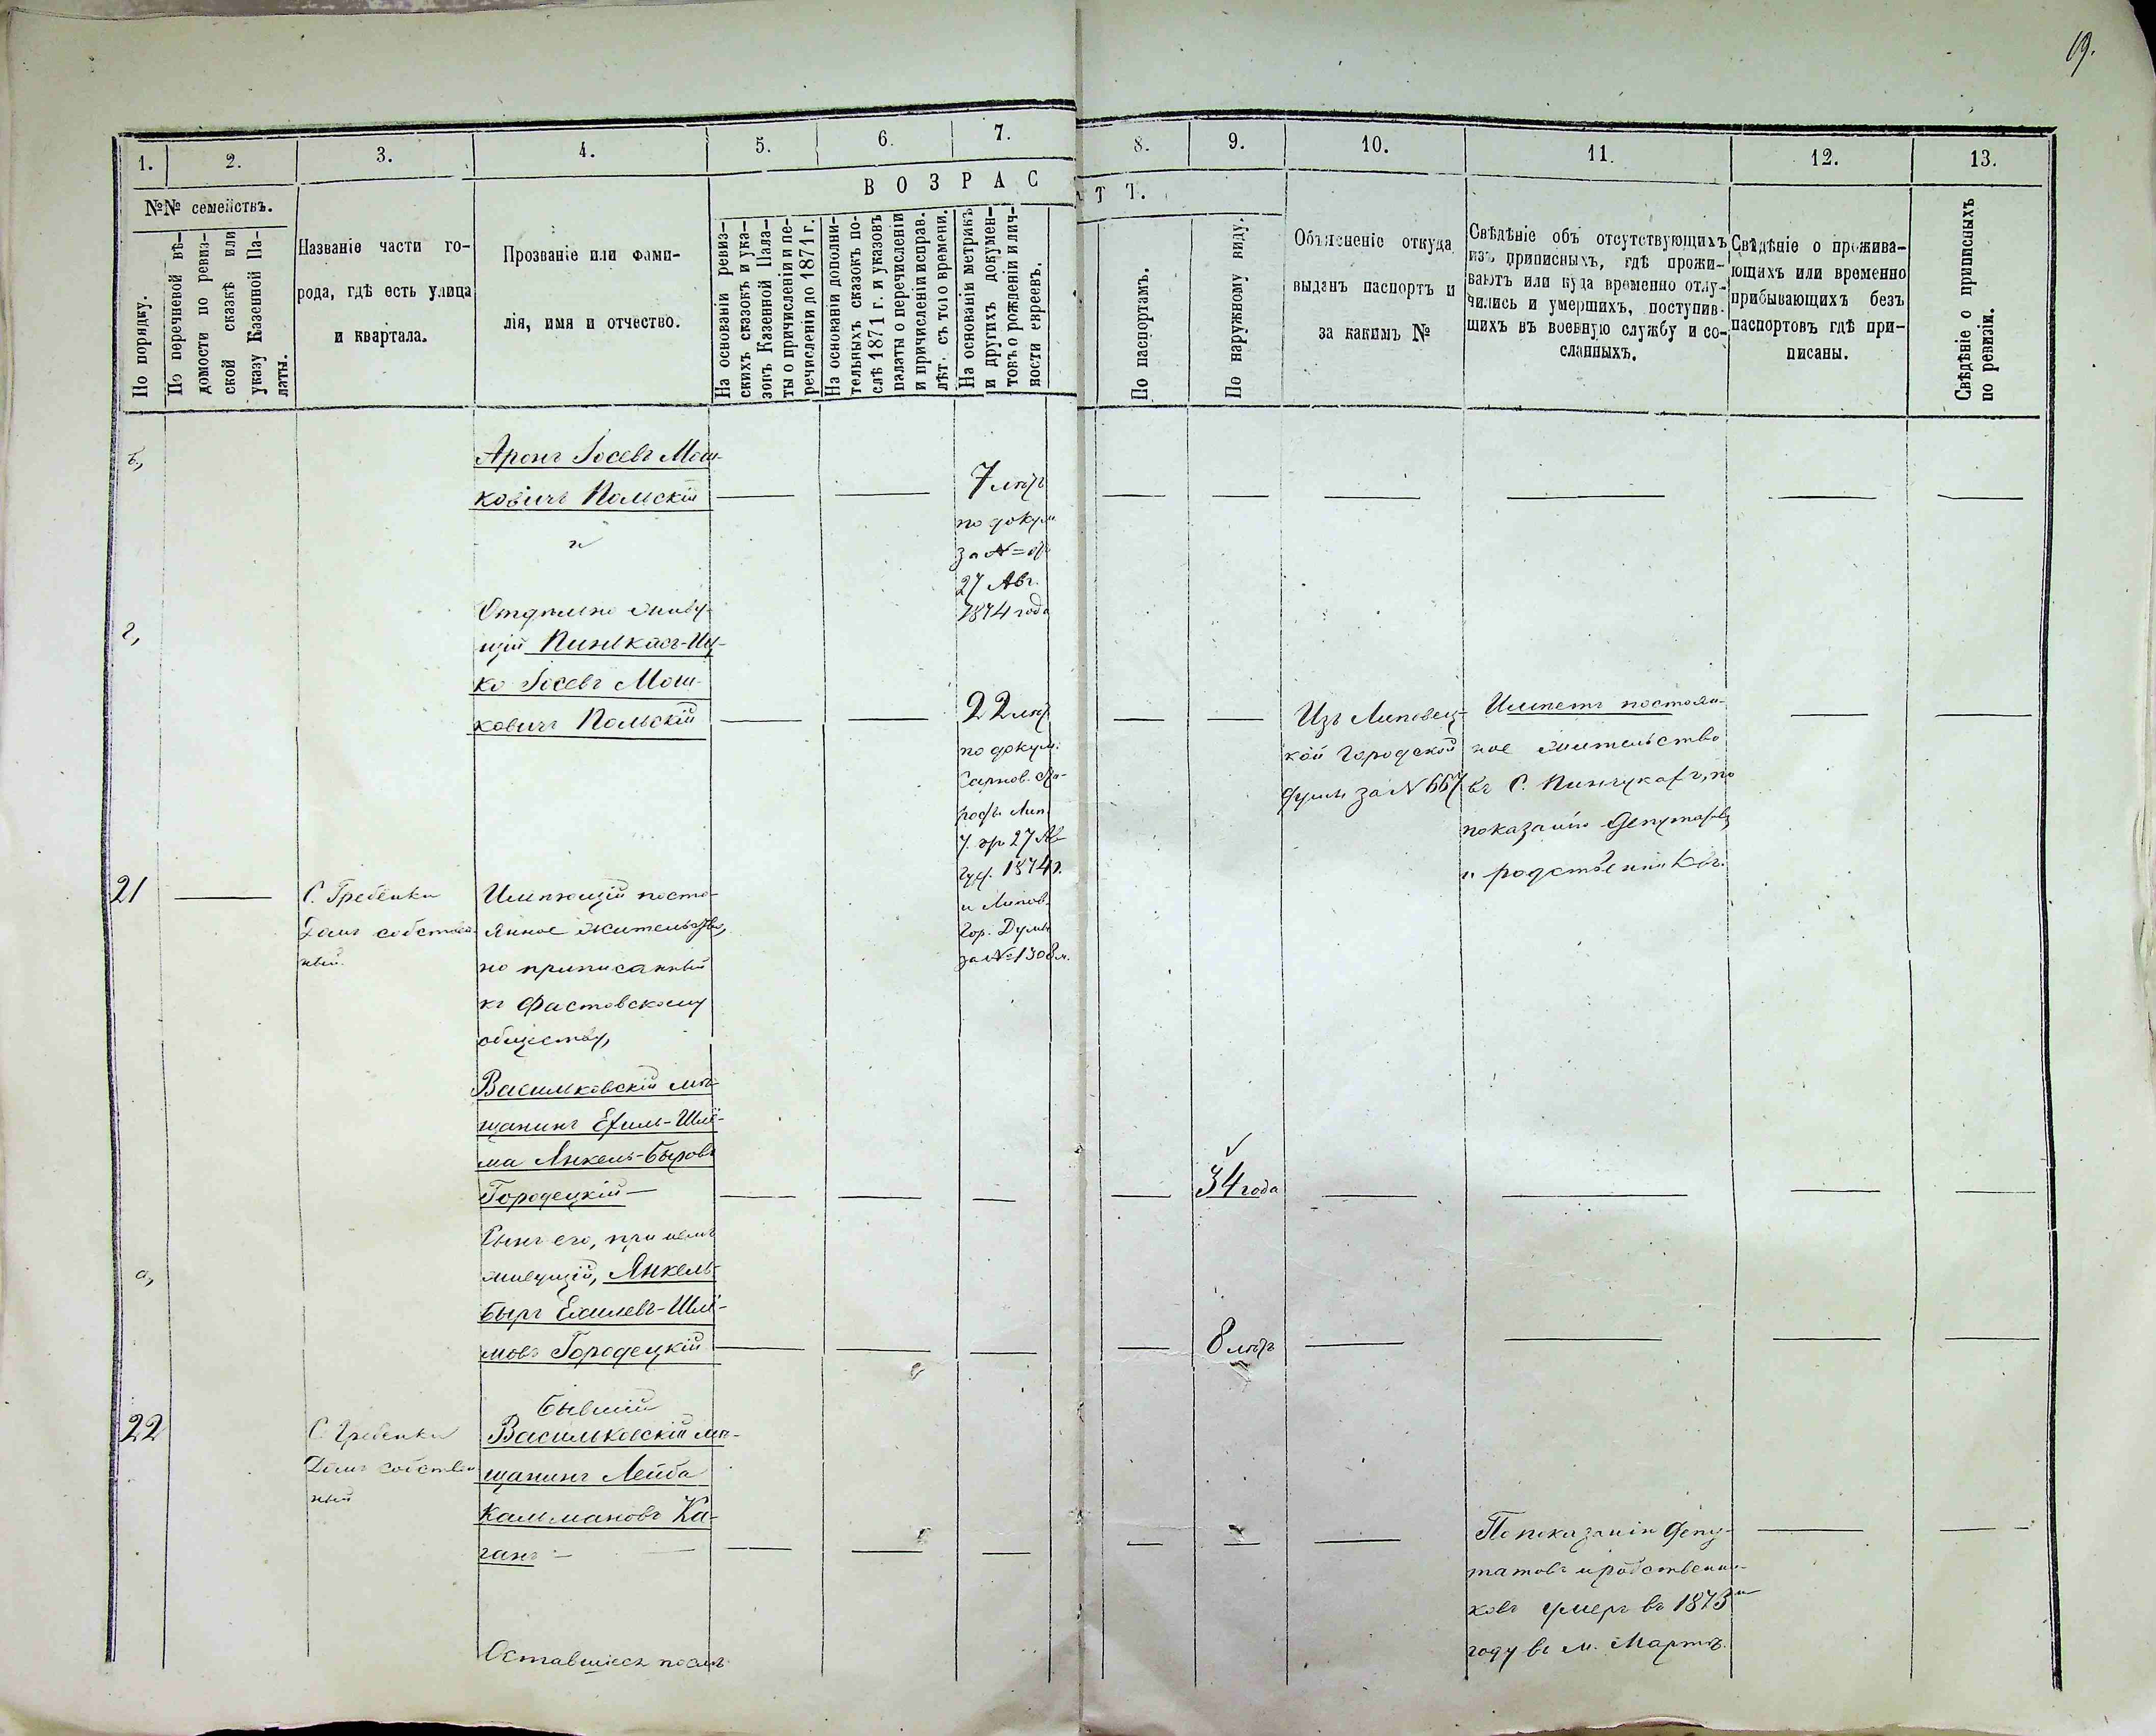 19.
1. 2. 3. 4. 5. 6. 7. 8. 9. 10. 11. 12. 13.
№№ семействъ.
По порядку.
По перечневой вѣ-
домости по ревиз-
ской сказкѣ или
указу Казенной Па-
латы.
Названіе части го-
рода, гдѣ есть улица
и квартала.
Прозваніе или фами-
лія, имя и отчество.
ВОЗРАС
ТТ.
На основаніи ревиз-
скихъ сказокъ и ука-
зовъ Казенной Пала-
ты о причисленіи и пе-
речисленіи до 1871 г.
На основаніи дополни-
тельныхъ сказокъ по-
слѣ 1871 г. и указовъ
палаты о перечисленіи
и причисленіи исправ.
лѣт. съ того времени.
На основаніи метрикъ
и другихъ докумен-
товъ о рожденіи и лич-
ности евреевъ.
По паспортамъ.
По наружному виду.
Объясненіе откуда
выданъ паспортъ и
за какимъ №
Свѣдѣніе объ отсутствующихъ
изъ приписныхъ, гдѣ прожи-
ваютъ или куда временно отлу-
чились и умершихъ, поступив-
шихъ въ военную службу и со-
сланныхъ.
Свѣдѣніе о прожива-
ющихъ или временно
прибывающихъ безъ
паспортовъ гдѣ при-
писаны.
Свѣдѣніе о приписныхъ
по ревизіи.
Аронъ Іосевъ Мош-
ковичъ Польскій
и
7 лѣтъ
по докум
за №
27 Авг.
1874 года
г,
Отдѣльно живу-
щій Пинькас-Иц-
ко Іосевъ Мош-
ковичъ Польскій
22 лѣт
по докум.
27
1874 г.
и Липов.
Гор. Думы
за № 1308
Изъ Липовец-
кой Городской
Думы за № 667
Имѣетъ постоян-
ное жительство
въ С. Пинчукахъ, по
показанію Депутатовъ
и родственниковъ.
21
С. Гребенки
Домъ собствен-
ный.
Имѣющій посто-
янное жительство,
но приписанный
къ Фастовскому
обществу,
Васильковскій мѣ-
щанинъ Ехиль-Шлё-
ма Янкель-Быровъ
Городецкій
34 года
а,
Сынъ его, при немъ
живущій, Янкель-
Быръ Ехилевъ-Шлё-
мовъ Городецкій
8 лѣтъ
22
С. Гребенки
Домъ собствен
ный
Бывшій
Васильковскій мѣ-
щанинъ Лейба
Кальмановъ Ка-
ганъ
По показанію Депу-
татовъ и родственни-
ковъ умеръ въ 1873 м
году въ м. Мартѣ.
Оставшіеся послѣ